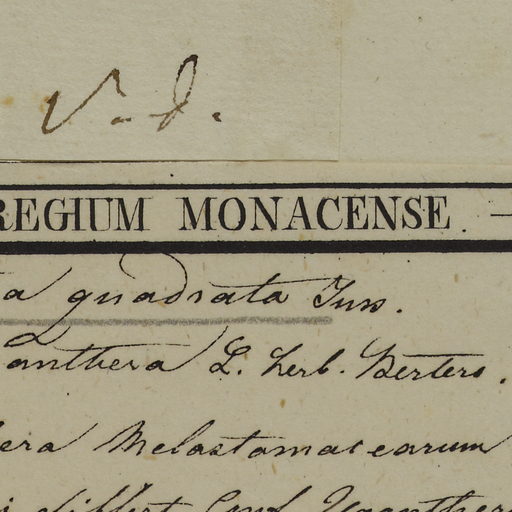 v. d.
REGIUM MONACENSE. —
a quadrata Juss.
anthera L. herb. Bertero.
era Melastomacearum
differt Conf.